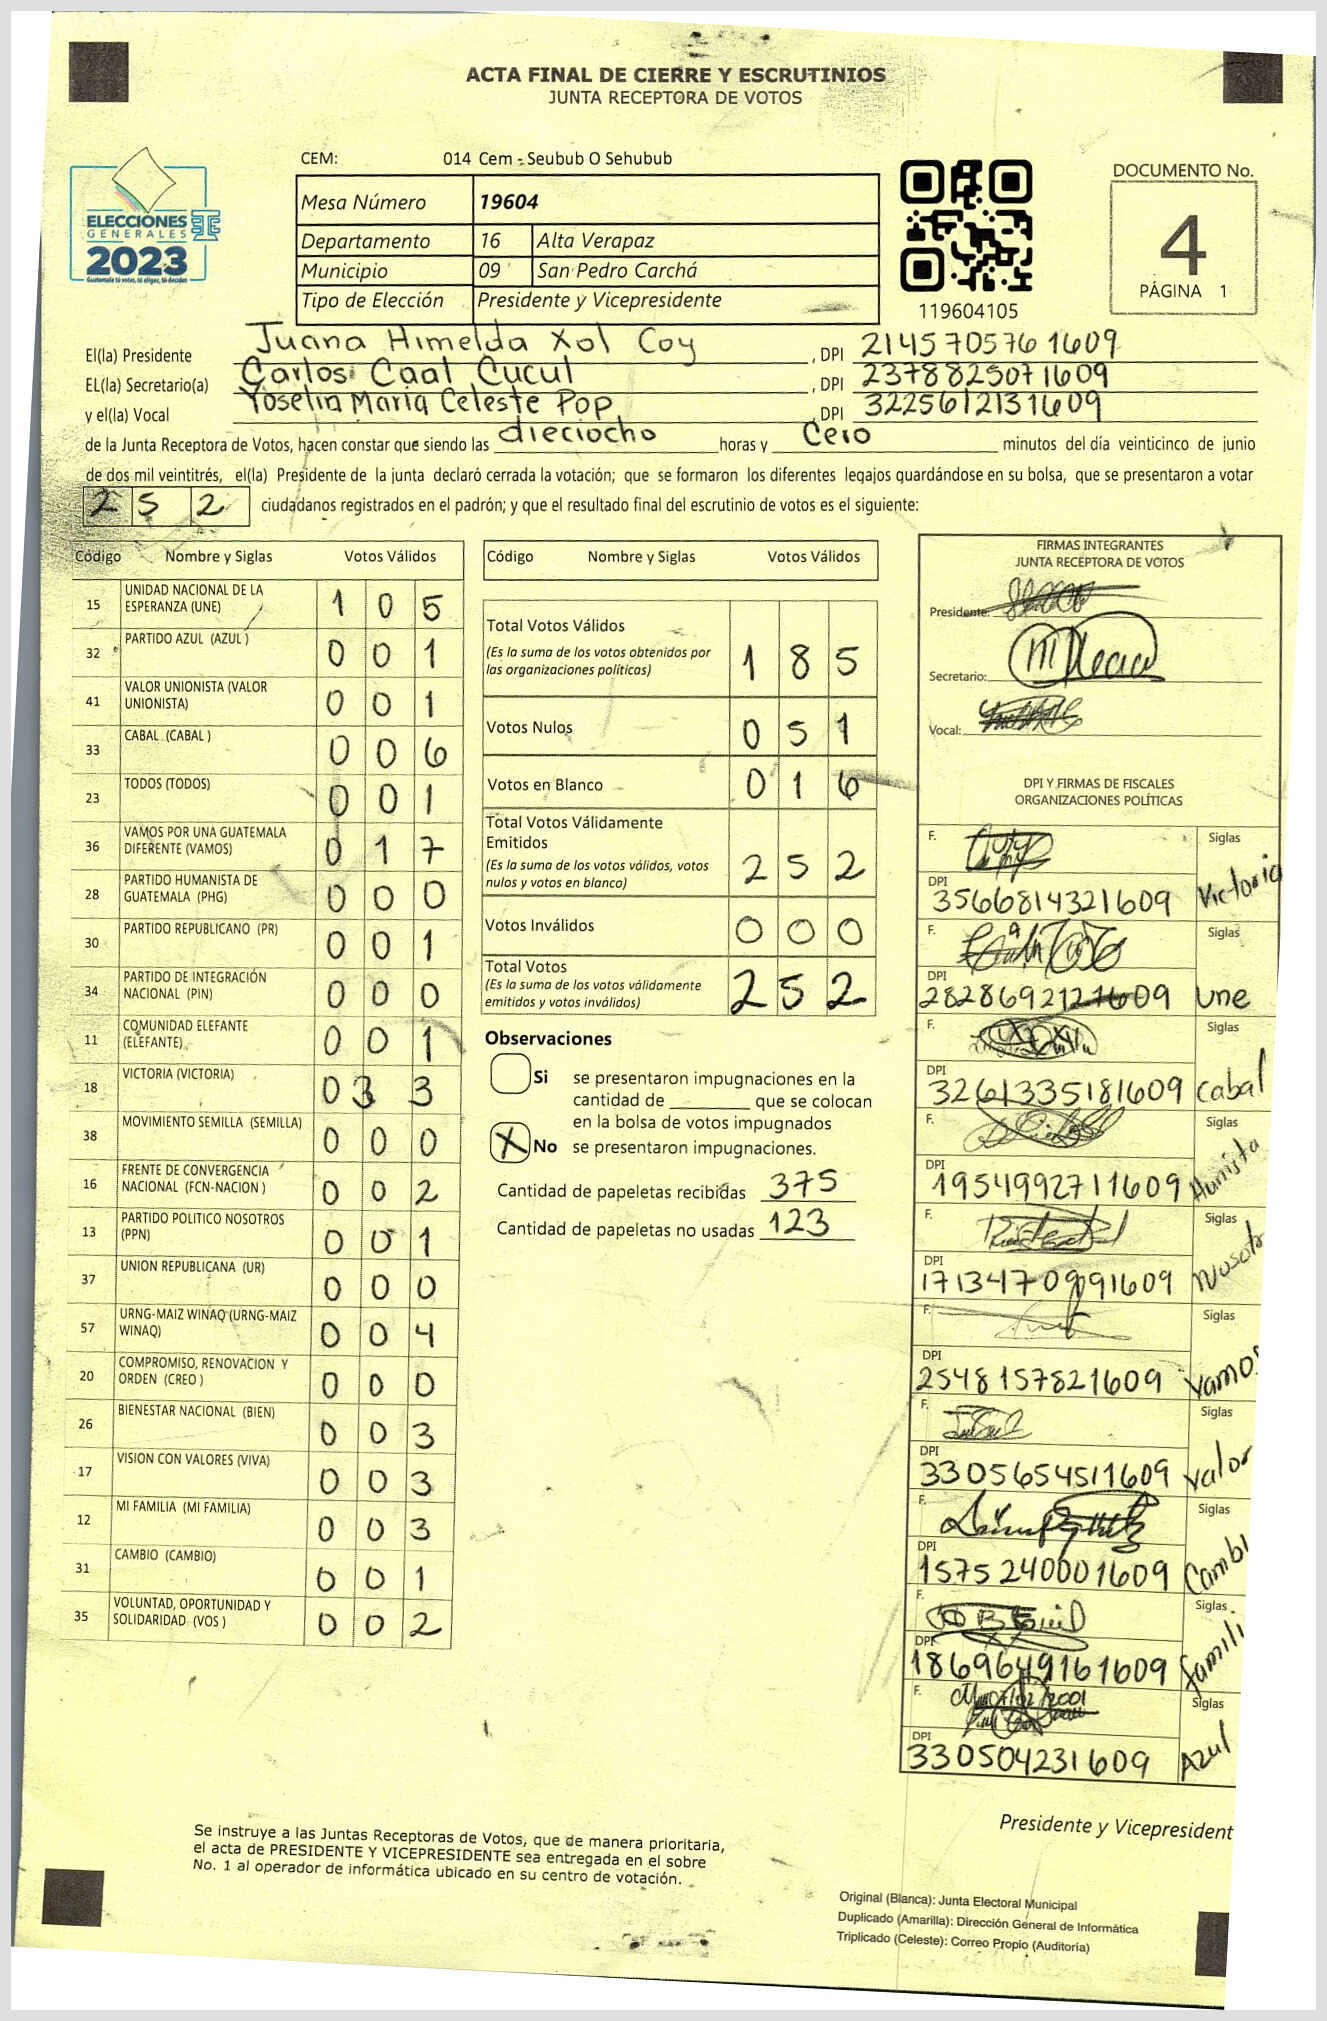 ACTA FINAL DE CIERRE Y ESCRUTINIOS
JUNTA RECEPTORA DE VOTOS
CEM: 014 Cem - Seubub O Sehubub
DOCUMENTO No.
4
PÁGINA 1
ELECCIONES
GENERALES
2023
Guatemala tú votas, tú eliges, tú decides
Mesa Número 19604
Departamento 16 Alta Verapaz
Municipio 09 San Pedro Carchá
Tipo de Elección Presidente y Vicepresidente
119604105
El(la) Presidente Juana Himelda Xol Coy, DPI 2145705761609
EL(la) Secretario(a) Carlos Caal Cucul, DPI 2378825071609
y el(la) Vocal Yoselin Maria Celeste Pop, DPI 3225612131609
de la Junta Receptora de Votos, hacen constar que siendo las dieciocho horas y Cero minutos del día veinticinco de junio
de dos mil veintitrés, el(la) Presidente de la junta declaró cerrada la votación; que se formaron los diferentes legajos guardándose en su bolsa, que se presentaron a votar
2 5 2 ciudadanos registrados en el padrón; y que el resultado final del escrutinio de votos es el siguiente:
Código Nombre y Siglas Votos Válidos
15 UNIDAD NACIONAL DE LA
ESPERANZA (UNE) 1 0 5
32 PARTIDO AZUL (AZUL ) 0 0 1
41 VALOR UNIONISTA (VALOR
UNIONISTA) 0 0 1
33 CABAL (CABAL ) 0 0 6
23 TODOS (TODOS) 0 0 1
36 VAMOS POR UNA GUATEMALA
DIFERENTE (VAMOS) 0 1 7
28 PARTIDO HUMANISTA DE
GUATEMALA (PHG) 0 0 0
30 PARTIDO REPUBLICANO (PR) 0 0 1
34 PARTIDO DE INTEGRACIÓN
NACIONAL (PIN) 0 0 0
11 COMUNIDAD ELEFANTE
(ELEFANTE) 0 0 1
18 VICTORIA (VICTORIA) 0 3 3
38 MOVIMIENTO SEMILLA (SEMILLA) 0 0 0
16 FRENTE DE CONVERGENCIA
NACIONAL (FCN-NACION ) 0 0 2
13 PARTIDO POLITICO NOSOTROS
(PPN) 0 0 1
37 UNION REPUBLICANA (UR) 0 0 0
57 URNG-MAIZ WINAQ (URNG-MAIZ
WINAQ) 0 0 4
20 COMPROMISO, RENOVACION Y
ORDEN (CREO ) 0 0 0
26 BIENESTAR NACIONAL (BIEN) 0 0 3
17 VISION CON VALORES (VIVA) 0 0 3
12 MI FAMILIA (MI FAMILIA) 0 0 3
31 CAMBIO (CAMBIO) 0 0 1
35 VOLUNTAD, OPORTUNIDAD Y
SOLIDARIDAD (VOS ) 0 0 2
Código Nombre y Siglas Votos Válidos
Total Votos Válidos
(Es la suma de los votos obtenidos por
las organizaciones políticas) 1 8 5
Votos Nulos 0 5 1
Votos en Blanco 0 1 6
Total Votos Válidamente
Emitidos
(Es la suma de los votos válidos, votos
nulos y votos en blanco) 2 5 2
Votos Inválidos 0 0 0
Total Votos
(Es la suma de los votos válidamente
emitidos y votos inválidos) 2 5 2
Observaciones
Si se presentaron impugnaciones en la
cantidad de ________ que se colocan
en la bolsa de votos impugnados
X No se presentaron impugnaciones.
Cantidad de papeletas recibidas 375
Cantidad de papeletas no usadas 123
FIRMAS INTEGRANTES
JUNTA RECEPTORA DE VOTOS
Presidente:
Secretario:
Vocal:
DPI Y FIRMAS DE FISCALES
ORGANIZACIONES POLÍTICAS
F. Siglas
DPI
3566814321609 Victoria
F. Siglas
DPI
2828692121609 une
F. Siglas
DPI
3261335181609 Cabal
F. Siglas
DPI
1954992711609 Humista
F. Siglas
DPI
1713470991609 Nosotr
F. Siglas
DPI
2548157821609 Vamos
F. Siglas
DPI
3305654511609 Valor
F. Siglas
DPI
1575240001609 Cambi
F. Siglas
DPI
1869649161609 famili
F. Siglas
DPI
330504231609 Azul
Presidente y Vicepresident
Se instruye a las Juntas Receptoras de Votos, que de manera prioritaria,
el acta de PRESIDENTE Y VICEPRESIDENTE sea entregada en el sobre
No. 1 al operador de informática ubicado en su centro de votación.
Original (Blanca): Junta Electoral Municipal
Duplicado (Amarilla): Dirección General de Informática
Triplicado (Celeste): Correo Propio (Auditoría)